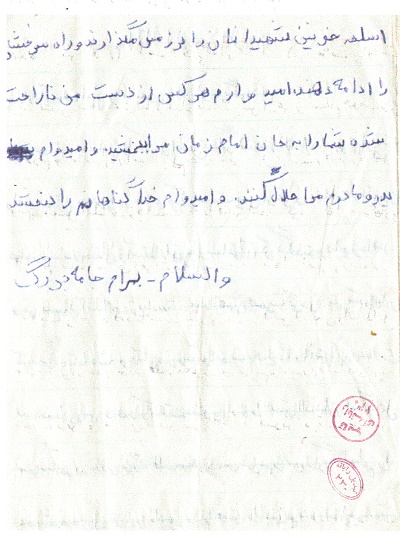 اسلحه خونین شهیدانمان را بر زمین نگذارند و راه سرخشان
را ادامه دهند. امیدوارم هر کس از دست من ناراحت
شده شما را به جان امام زمان مرا ببخشید. و امیدوارم
پدر و مادرم مرا حلال کنند. و امیدوارم خدا گناهانم را ببخشد
والسلام - بهرام جامه بزرگ